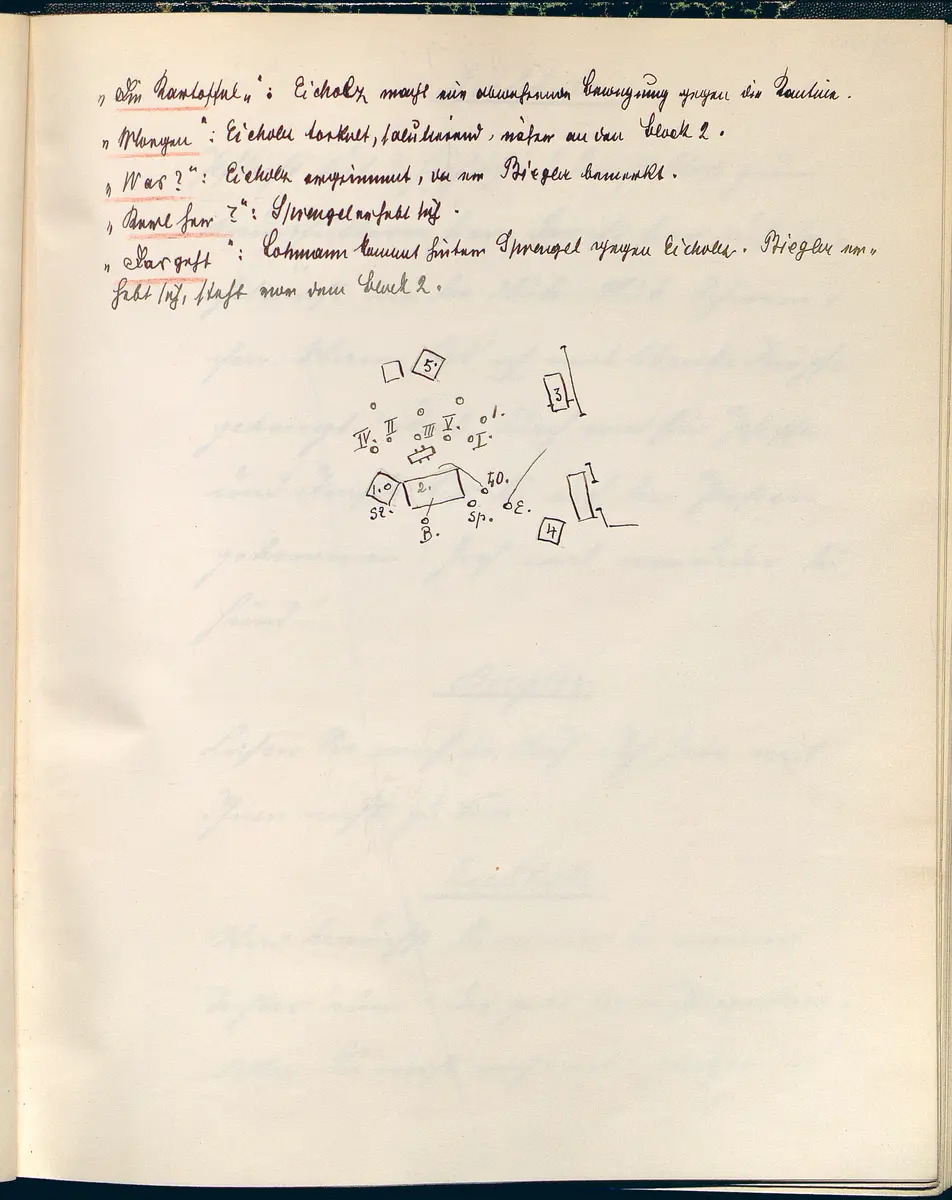 „Die Kartoffel„“: Eicholz macht eine abwehrende Bewegung gegen die Kantine.
„Morgen“: Eicholz torkelt, salutierend, näher an den Block 2.
„Was?“: Eicholz ergrimmt, da er Biegler bemerkt.
„Kerl her?“: Sprengel erhebt sich.
„Das geht“: Lohmann kommt hinter Sprengel gegen Eicholz. Biegler er-
hebt sich, steht vor dem Block 2.
5.
3
1.
IV. II III V. I.
1. 2. LO.
Sz. Sp. E.
B. 4